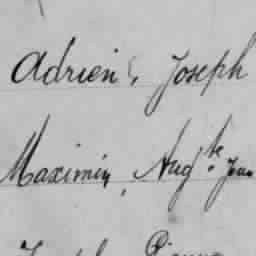 Adrien, Joseph
Maximin, Aug.te Jean